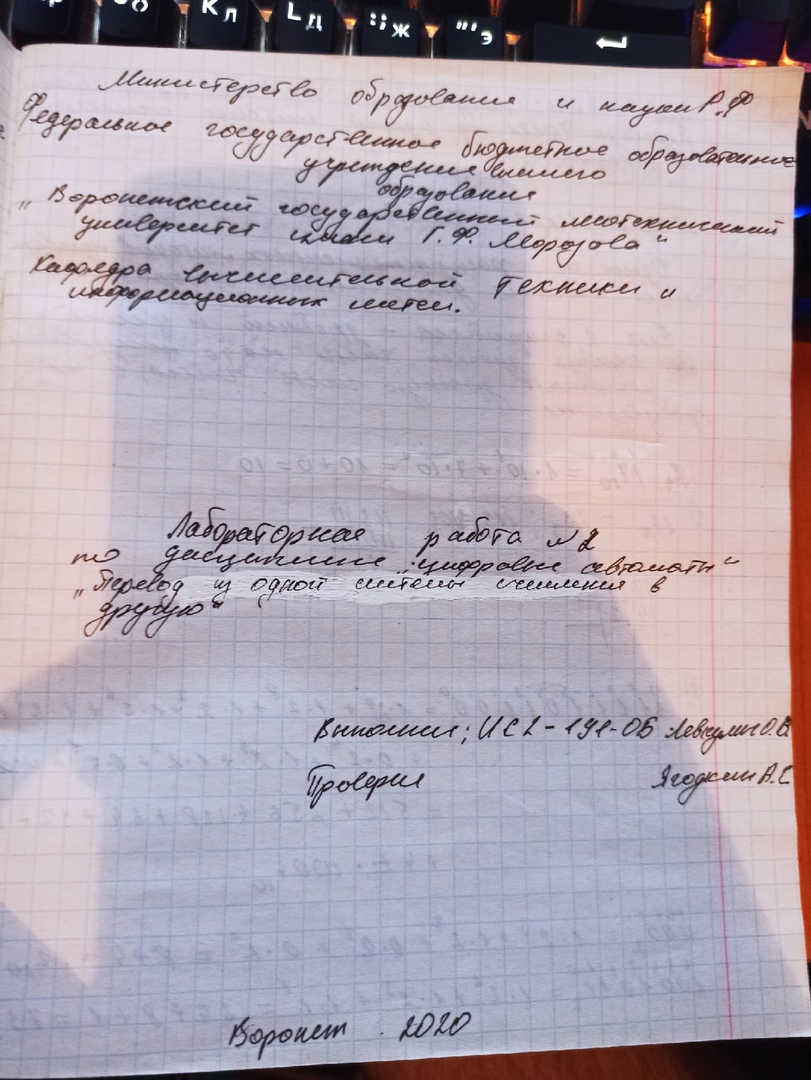 К Л
L Д
: ; Ж
" ' Э
Министерство образования и науки Р.Ф
Федеральное государственное бюджетное образовательное
учреждение высшего
образования
„Воронежский государственный лесотехнический
университет имени Г.Ф. Морозова“
Кафедра вычислительной техники и
информационных систем.
Лабораторная работа №2
по дисциплине „цифровые автоматы“
„Перевод из одной системы счисления в
другую“
Выполнил; ИС2-191-ОБ Левкулин О.В
Проверил Ягодкин А.С
Воронеж 2020